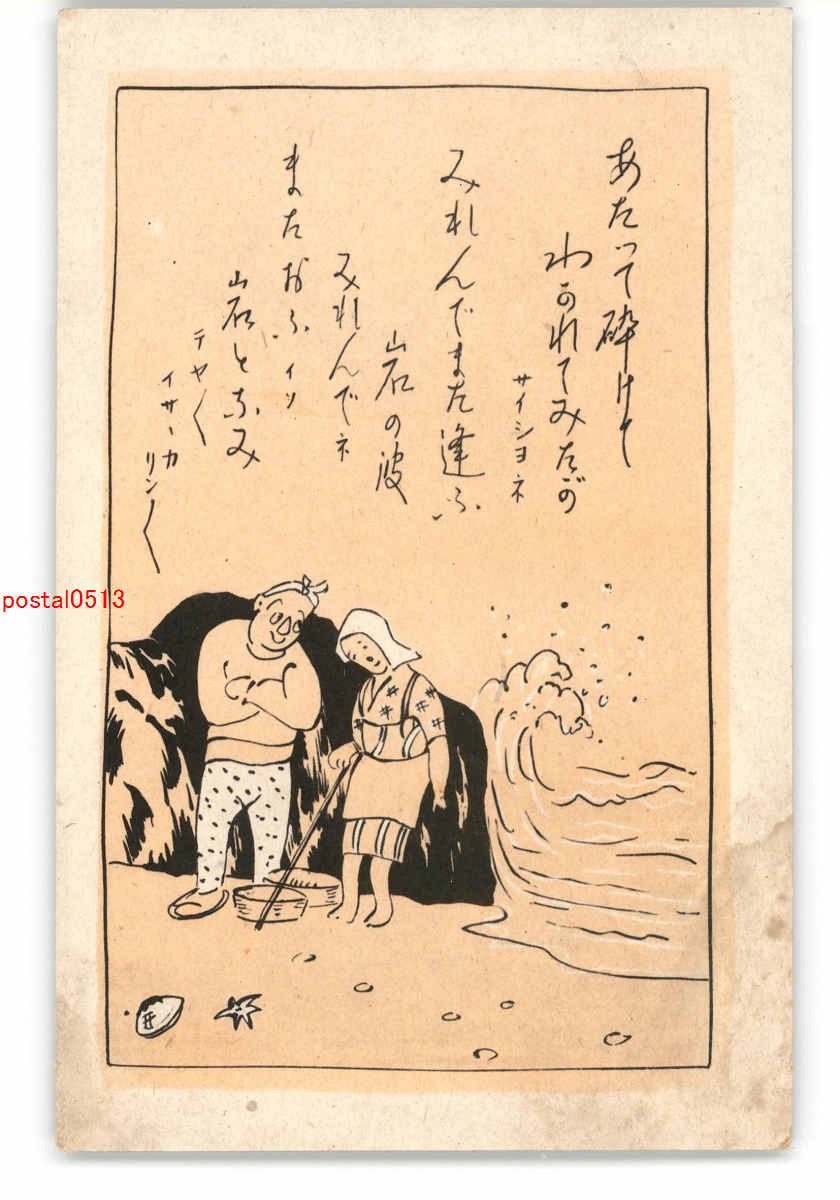 あたつて砕けて
わかれてみたが
サイシヨネ
みれんでまた逢ふ
岩の波
みれんでネ
またおふ イソ
岩となみ
テヤ〱
イサーカ
リン〱
postal0513